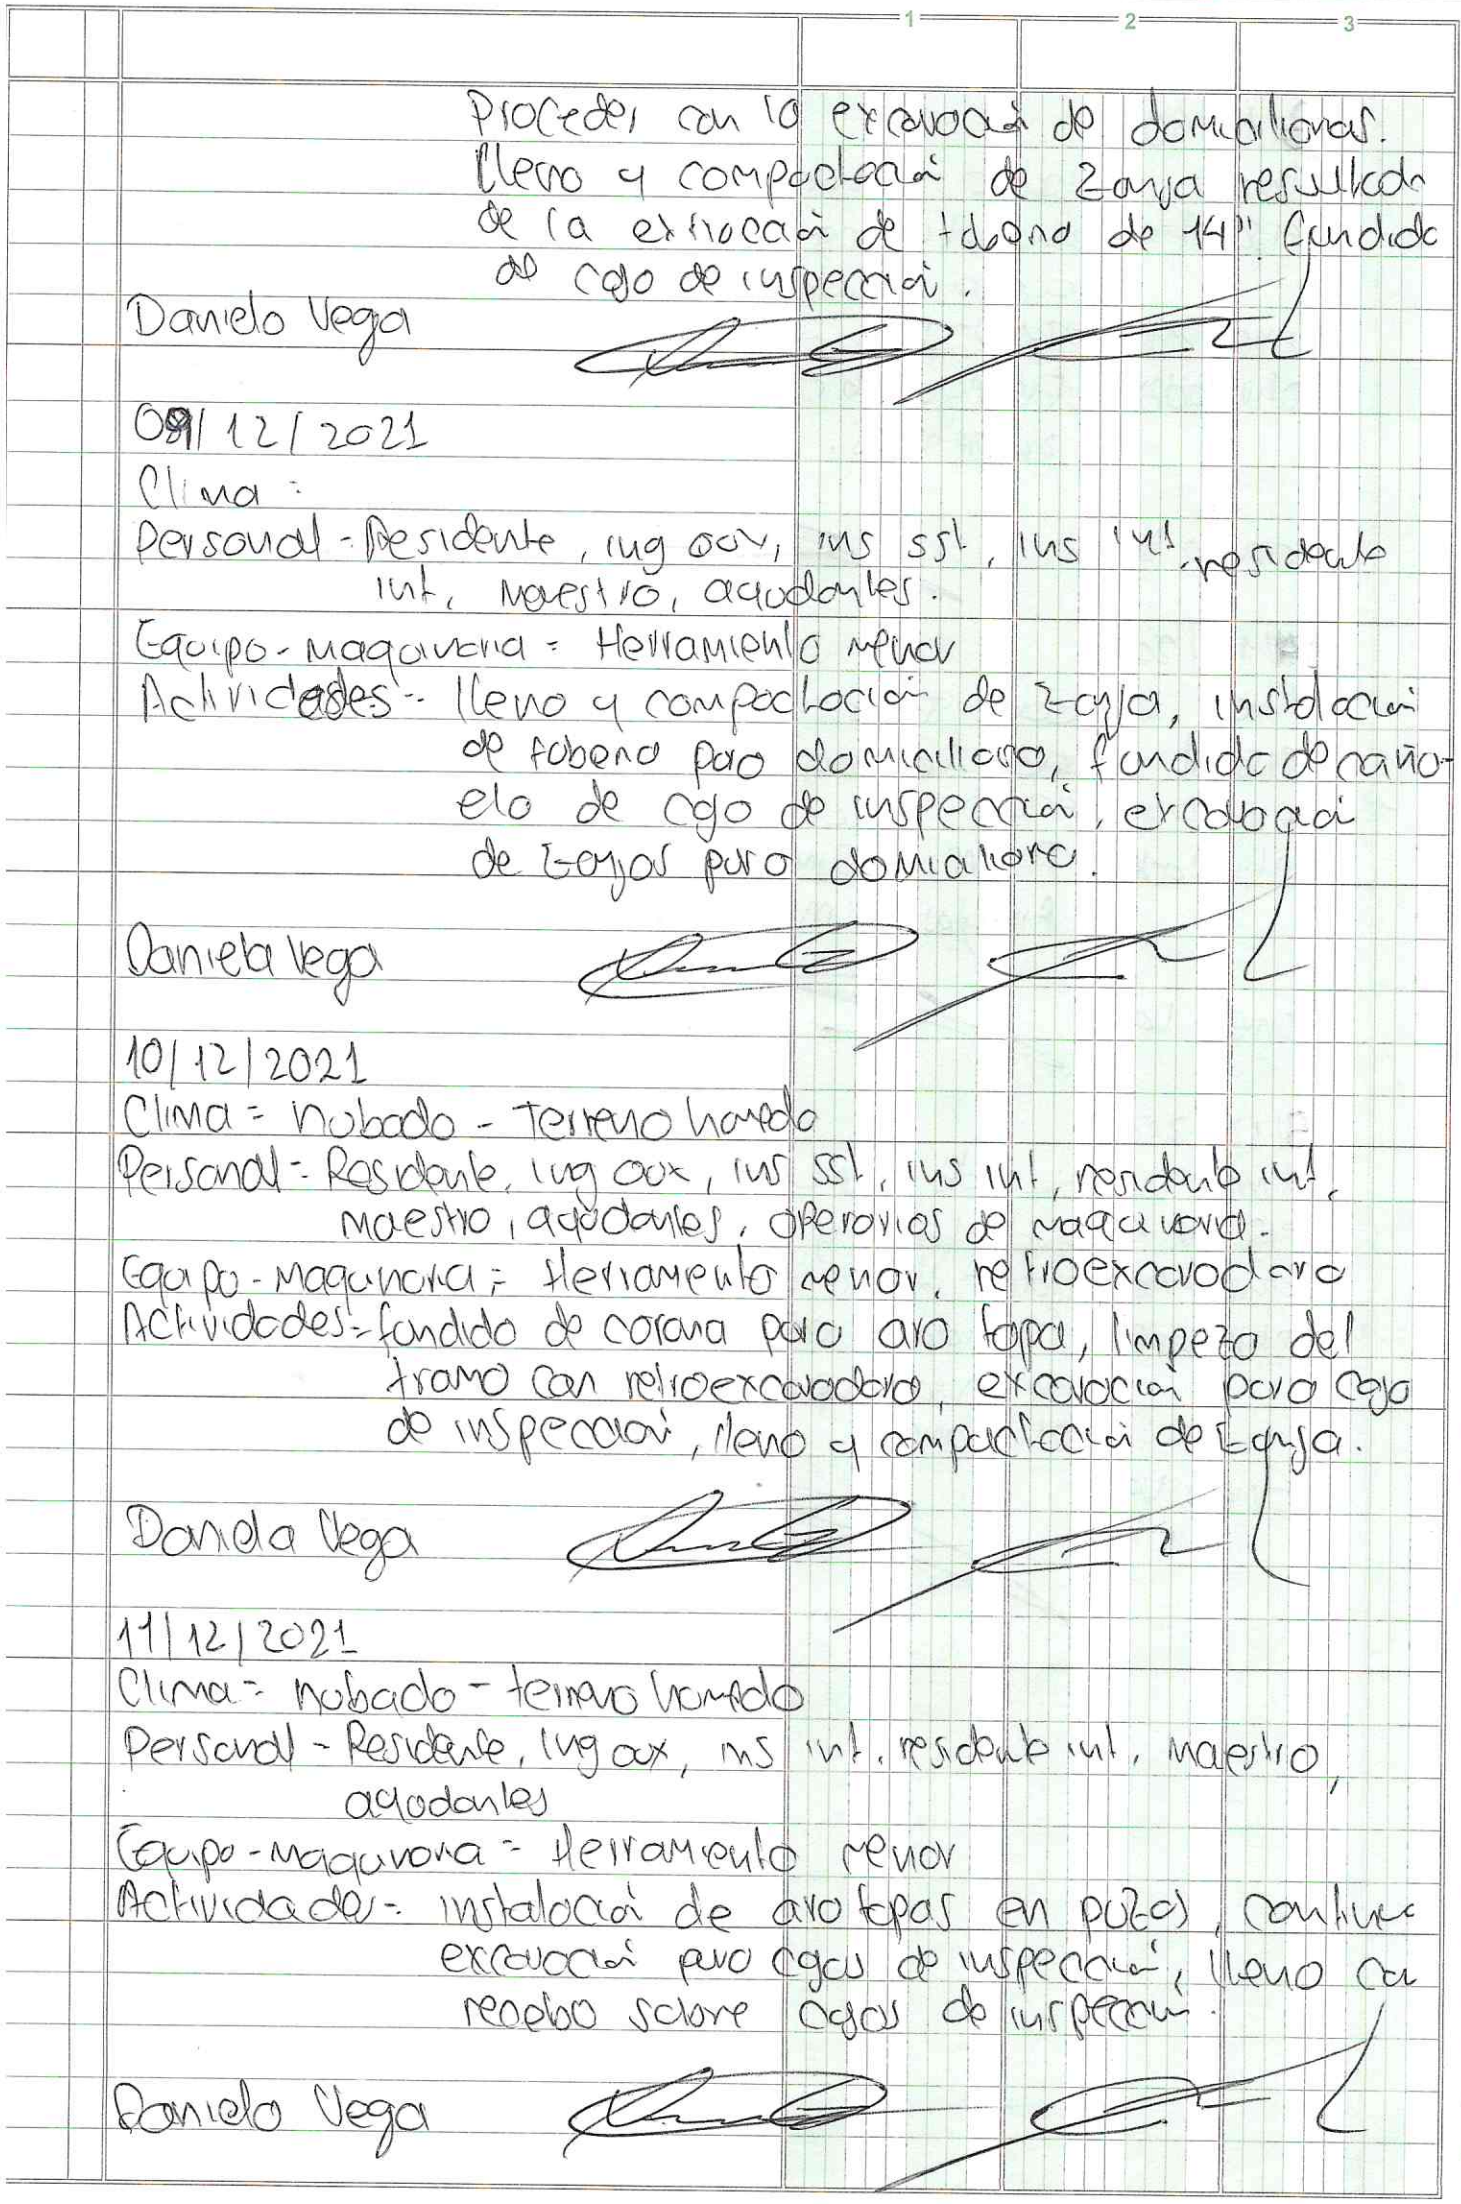 1 2 3
Proceder con la excavación de domiciliarias.
lleno y compactación de zanja resultado
de la extracción de tubería de 14" fundido
de caja de inspección.
Daniela Vega
09/12/2021
Clima :
Personal - Residente, ing aux, ins sst, ins int, residente
int, maestro, ayudantes.
Equipo - maquinaria = Herramienta menor
Actividades - lleno y compactación de zanja, instalación
de tubería para domiciliaria, fundido de cañu-
ela de caja de inspección, excavación
de zanjas para domiciliaria.
Daniela Vega
10/12/2021
Clima = nublado - Terreno humedo
Personal = Residente, ing aux, ins sst, ins int, residente int,
maestro, ayudantes, operarios de maquinaria.
Equipo - Maquinaria = Herramienta menor, retroexcavadora
Actividades = fundido de corona para aro tapa, limpieza del
tramo con retroexcavadora, excavación para caja
de inspección, lleno y compactación de zanja.
Daniela Vega
11/12/2021
Clima = nublado - terreno humedo
Personal - Residente, ing aux, ins int, residente int, maestro,
ayudantes
Equipo - maquinaria = Herramienta menor
Actividades = instalación de aro tapas en pozos, continua
excavación para cajas de inspección, lleno con
recebo sobre cajas de inspección.
Daniela Vega